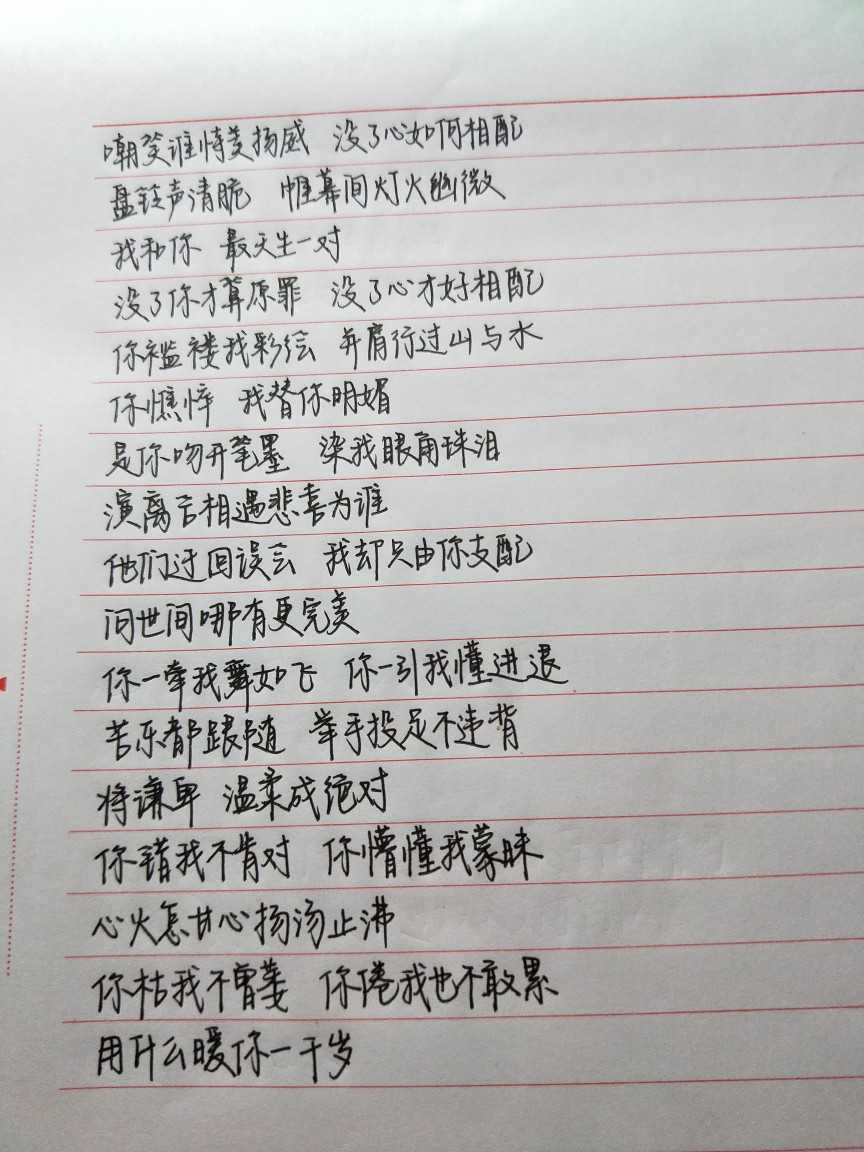 嘲笑谁恃美扬威 没了心如何相配
盘铃声清脆 帷幕间灯火幽微
我和你 最天生一对
没了你才算原罪 没了心才好相配
你褴褛我彩绘 并肩行过山与水
你憔悴 我替你明媚
是你吻开笔墨 染我眼角珠泪
演离合相遇悲喜为谁
他们迂回误会 我却只由你支配
问世间哪有更完美
你一牵我舞如飞 你一引我懂进退
苦乐都跟随 举手投足不违背
将谦卑 温柔成绝对
你错我不肯对 你懵懂我蒙昧
心火怎甘心扬汤止沸
你枯我不曾萎 你倦我也不敢累
用什么暖你一千岁